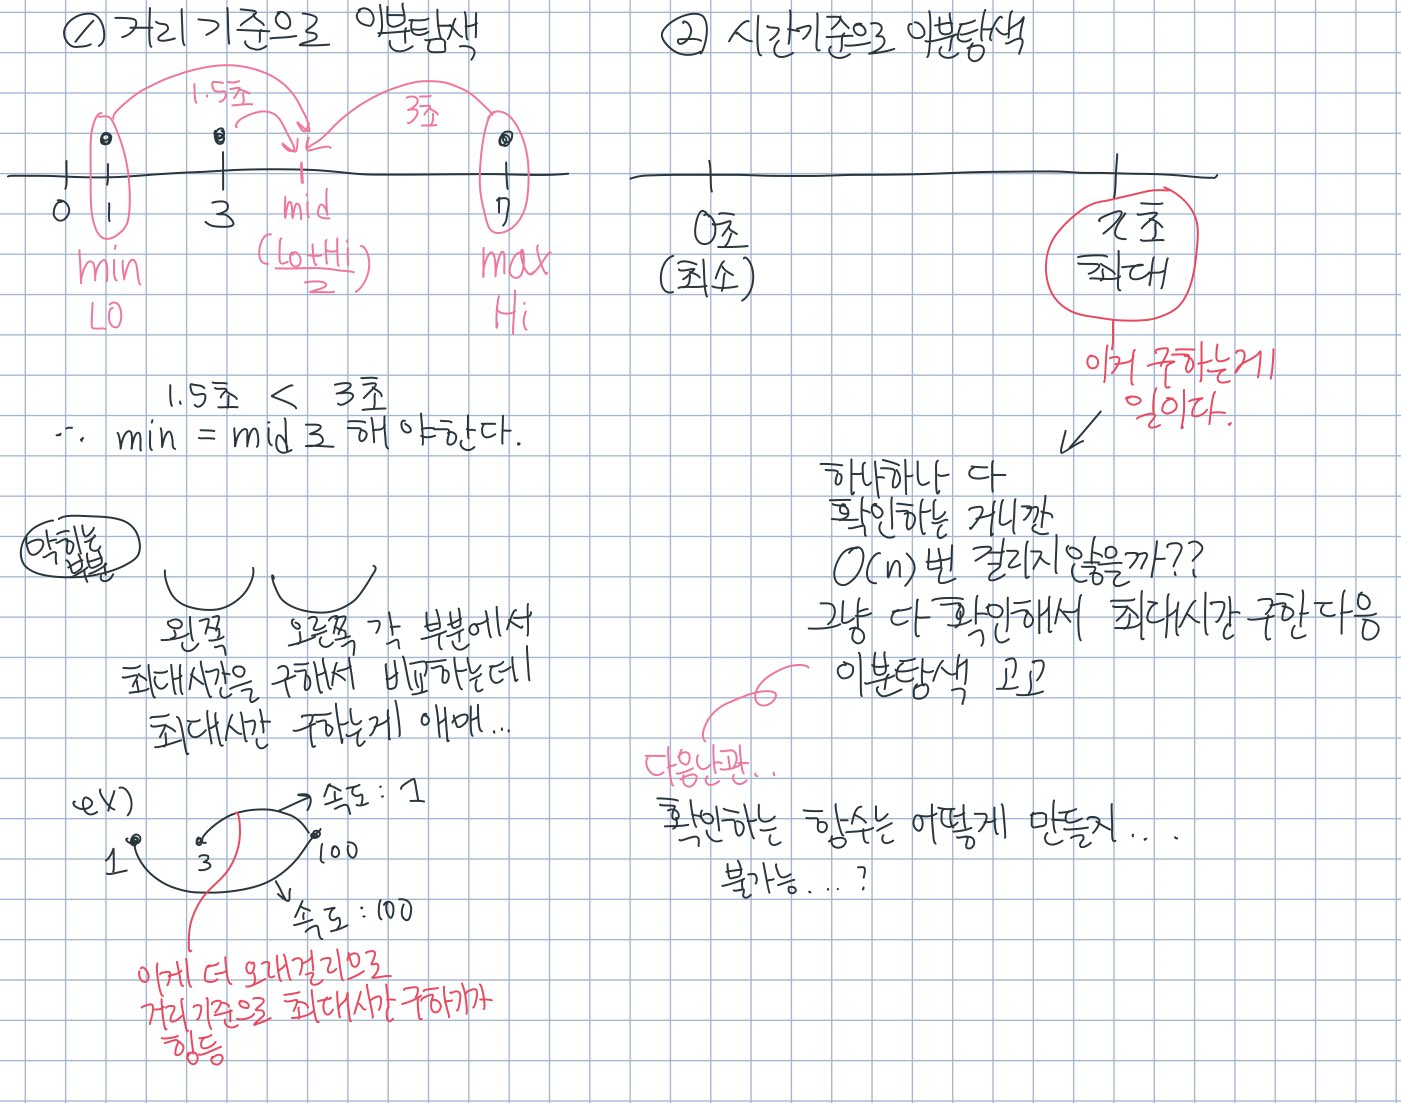 ① 거리 기준으로 이분탐색
1.5초
3초
0 1 3 mid 7
(Lo+Hi)
2
min
LO
max
Hi
1.5초 < 3초
∴ min = mid로 해야한다.
막히는
부분
왼쪽 오른쪽 각 부분에서
최대시간을 구해서 비교하는데
최대시간 구하는게 애매...
ex)
속도 : 1
1 3 100
속도 : 100
이게 더 오래걸리므로
거리기준으로 최대시간 구하기가
힘듬
② 시간기준으로 이분탐색
0초
(최소)
초
최대
이거 구하는게
일이다.
하나하나 다
확인하는 거니깐
O(n)번 걸리지않을까??
그냥 다 확인해서 최대시간 구한다음
이분탐색 고고
다음난관...
확인하는 함수는 어떻게 만들지....
불가능....?